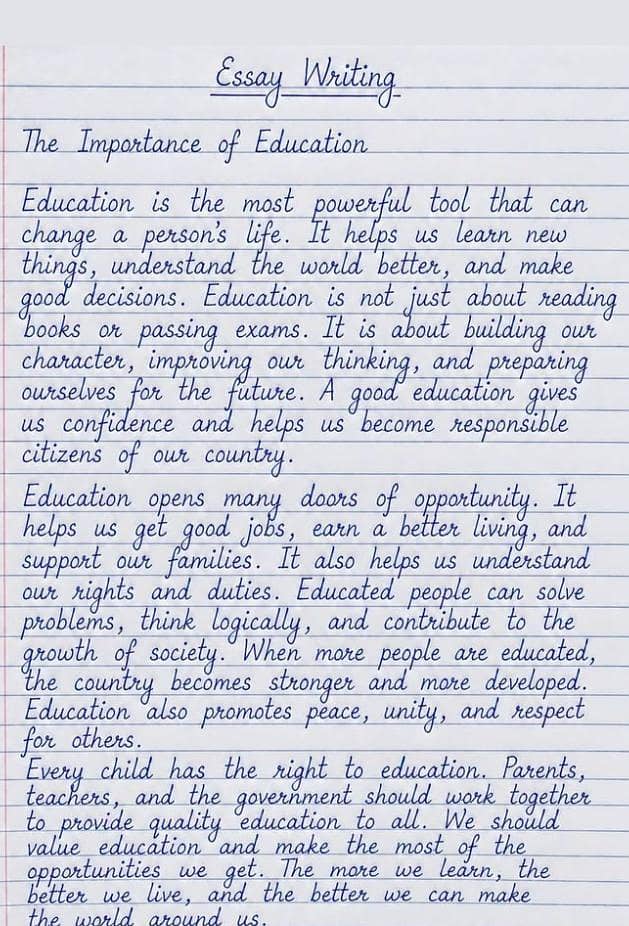 Essay Writing
The Importance of Education
Education is the most powerful tool that can
change a person's life. It helps us learn new
things, understand the world better, and make
good decisions. Education is not just about reading
books or passing exams. It is about building our
character, improving our thinking, and preparing
ourselves for the future. A good education gives
us confidence and helps us become responsible
citizens of our country.
Education opens many doors of opportunity. It
helps us get good jobs, earn a better living, and
support our families. It also helps us understand
our rights and duties. Educated people can solve
problems, think logically, and contribute to the
growth of society. When more people are educated,
the country becomes stronger and more developed.
Education also promotes peace, unity, and respect
for others.
Every child has the right to education. Parents,
teachers, and the government should work together
to provide quality education to all. We should
value education and make the most of the
opportunities we get. The more we learn, the
better we live, and the better we can make
the world around us.